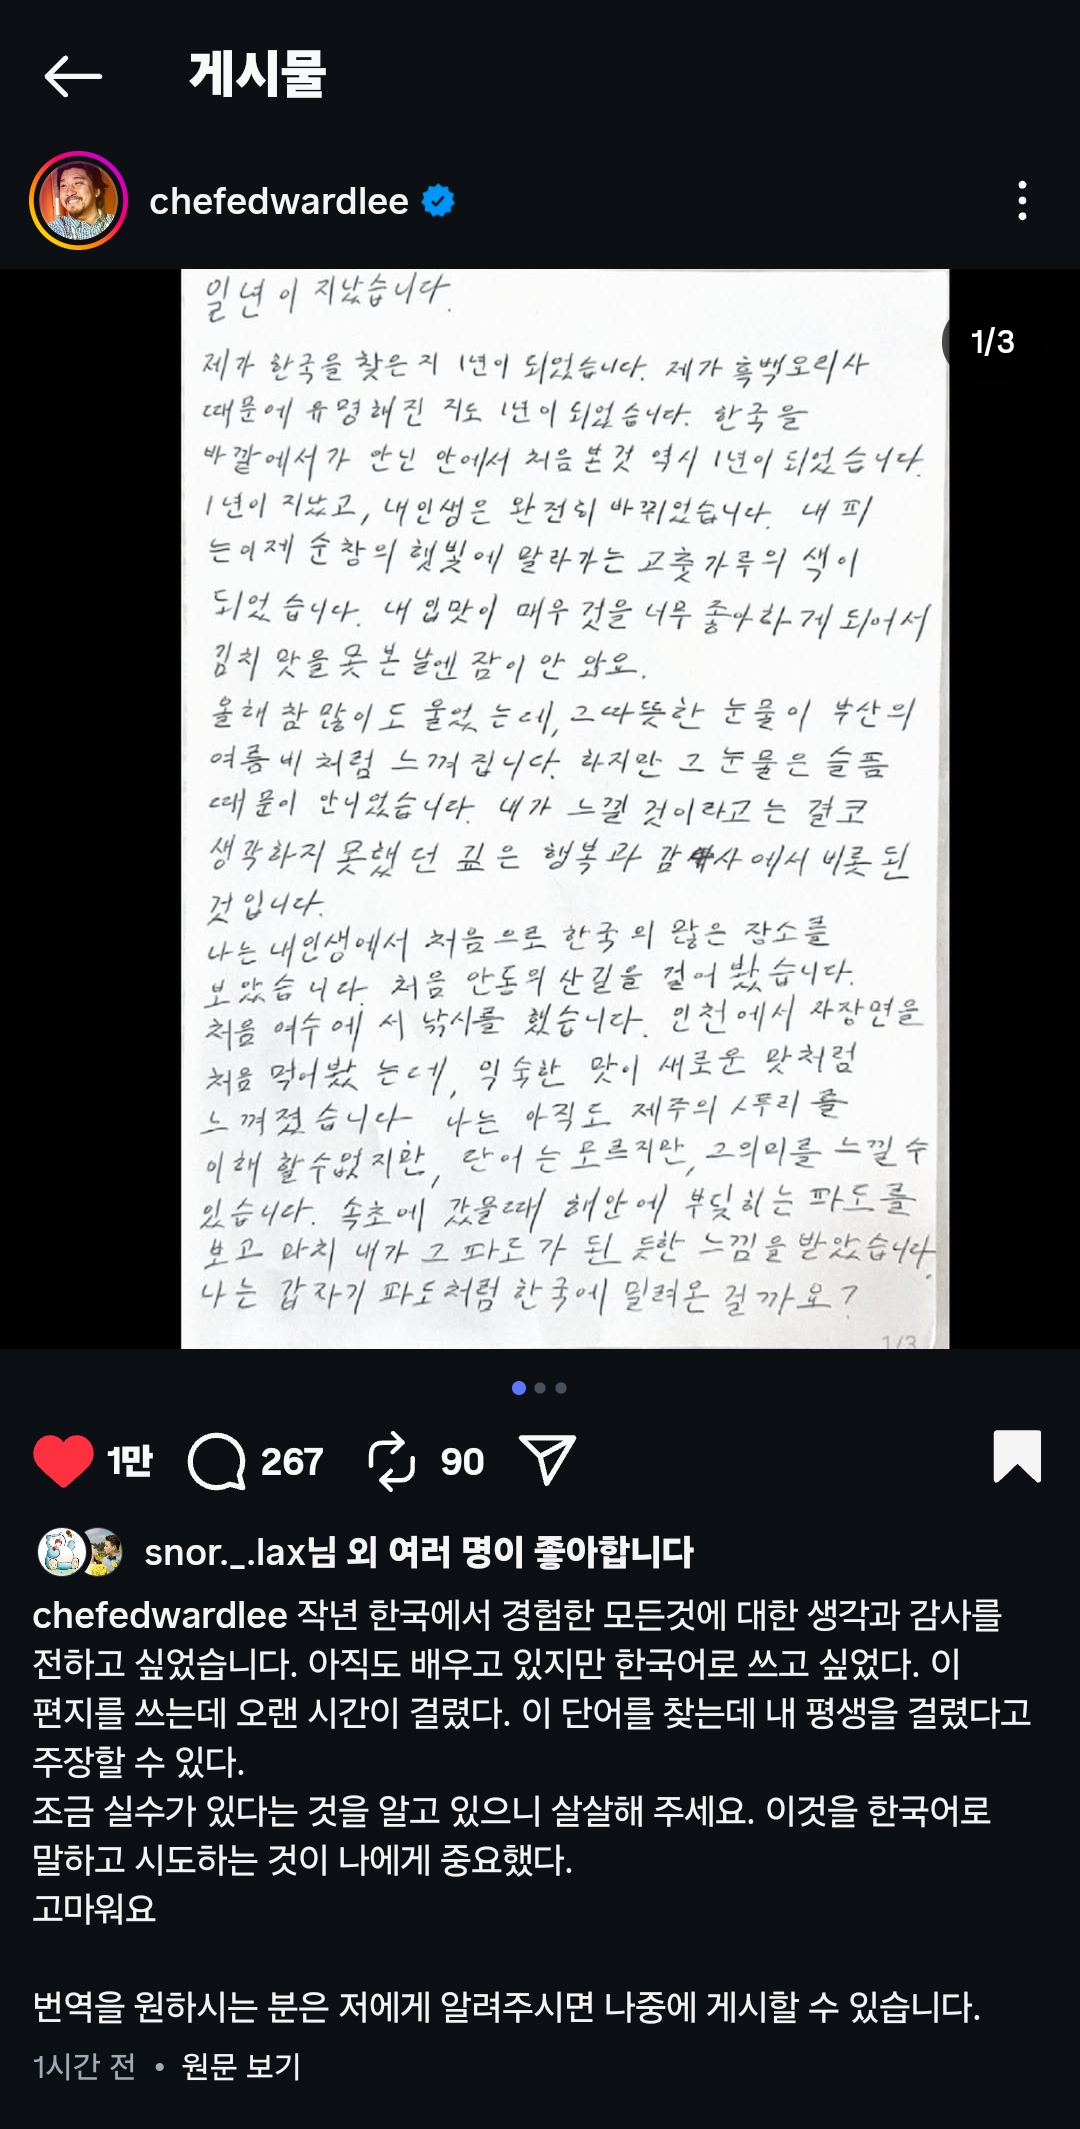 게시물
chefedwardlee
1/3
일년이 지났습니다.
제가 한국을 찾은 지 1년이 되었습니다. 제가 흑백오리사
때문에 유명해진 지도 1년이 되었습니다. 한국을
바깥에서가 안닌 안에서 처음 본것 역시 1년이 되었습니다.
1년이 지났고, 내인생은 완전히 바뀌었습니다. 내 피
는이제 순창의 햇빛에 말라가는 고춧가루의 색이
되었습니다. 내 입맛이 매우 것을 너무 좋아하게 되어서
김치 맛을 못 본 날엔 잠이 안 와요.
올해 참 많이도 울었는데, 그따뜻한 눈물이 부산의
여름비처럼 느껴집니다. 하지만 그 눈물은 슬픔
때문이 안니었습니다. 내가 느낄 것이라고는 결코
생각하지 못했던 깊은 행복과 감사에서 비롯된
것입니다.
나는 내인생에서 처음으로 한국의 많은 장소를
보았습니다. 처음 안동의 산길을 걸어봤습니다.
처음 여수에서 낚시를 했습니다. 인천에서 자장면을
처음 먹어봤는데, 익숙한 맛이 새로운 맛처럼
느껴졌습니다 나는 아직도 제주의 사투리를
이해할수없지만, 단어는 모르지만, 그의미를 느낄 수
있습니다. 속초에 갔을때 해안에 부딪히는 파도를
보고 마치 내가 그 파도가 된 듯한 느낌을 받았습니다.
나는 갑자기 파도처럼 한국에 밀려온 걸까요?
1/3
1만 267 90
snor._.lax님 외 여러 명이 좋아합니다
chefedwardlee 작년 한국에서 경험한 모든것에 대한 생각과 감사를
전하고 싶었습니다. 아직도 배우고 있지만 한국어로 쓰고 싶었다. 이
편지를 쓰는데 오랜 시간이 걸렸다. 이 단어를 찾는데 내 평생을 걸렸다고
주장할 수 있다.
조금 실수가 있다는 것을 알고 있으니 살살해 주세요. 이것을 한국어로
말하고 시도하는 것이 나에게 중요했다.
고마워요
번역을 원하시는 분은 저에게 알려주시면 나중에 게시할 수 있습니다.
1시간 전 • 원문 보기